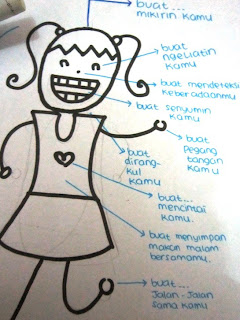 buat...
mikirin kamu
buat
ngeliatin
kamu
buat mendeteksi
keberadaanmu
buat senyumin
kamu
buat
pegang
tangan
kamu
buat
dirang-
kul
kamu
buat...
mencintai
kamu.
buat menyimpan
makan malam
bersamamu.
buat...
Jalan-Jalan
sama kamu